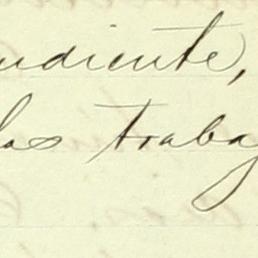 udiente,
las trabaj